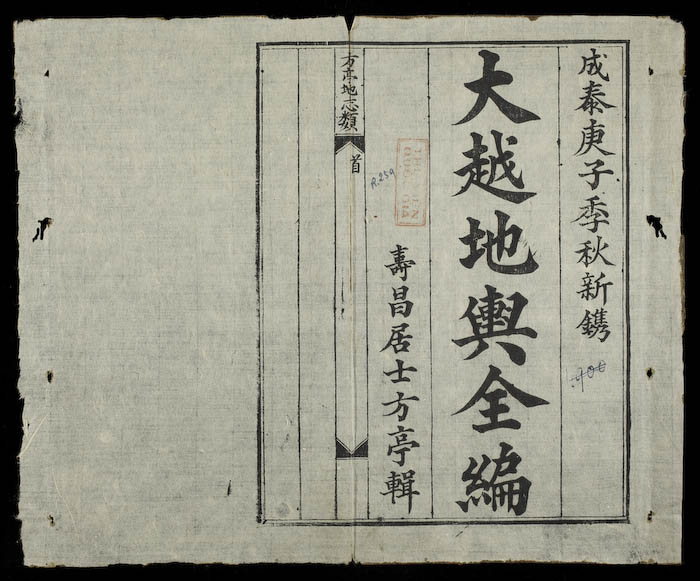 成泰庚子季秋新鐫
大越地輿全編
壽昌居士方亭輯
方亭地志類
首
R.259